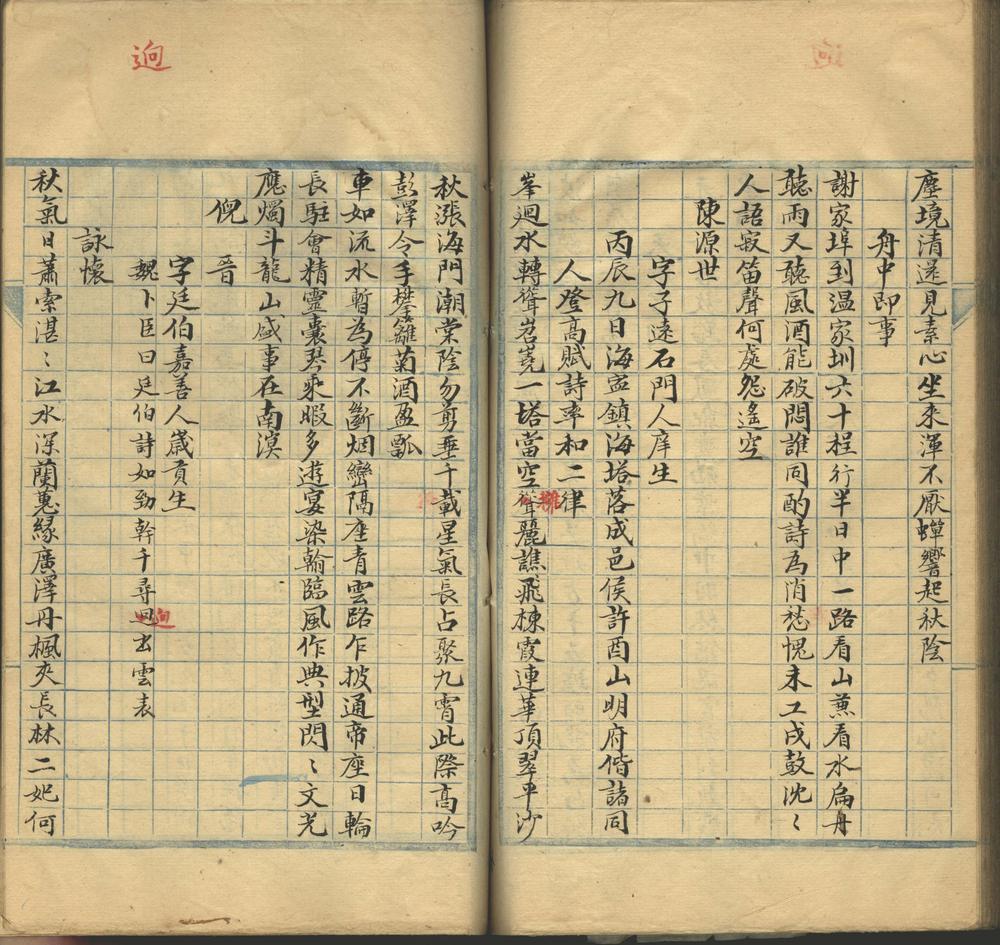 塵境清還見素心坐來渾不厭蟬響起秋陰
舟中即事
謝家埠到溫家圳六十程行半日中一路看山蕉看水扁舟
聽雨又聽風酒能破悶誰同酌詩為消愁愧未工戍鼓沈〻
人語寂笛聲何處怨遙空
陳源世
字子遠石門人庠生
丙辰九日海寍鎮海塔落成邑侯許酉山明府偕諸同
人登高賦詩率和二律
峯迴水轉聳岧嶤一塔當空聳麗譙飛棟霞連華頂翠平沙
雕
迥
迥
秋漲海門潮棠陰勿剪垂千載星氣長占聚九霄此際高吟
彭澤令手攀籬菊酒盈瓢
車如流水暫為停不斷烟巒隔座青雲路乍披通帝座日輪
長駐會精靈囊琴乘暇多遊宴染翰臨風作典型閃〻文光
應燭斗龍山盛事在南溟
倪晉
字廷伯嘉善人歲貢生
魏卜臣曰廷伯詩如勁幹千尋迥出雲表
迥
詠懷
秋氣日蕭索湛〻江水深蘭蕙緣廣澤丹楓夾長林二妃何